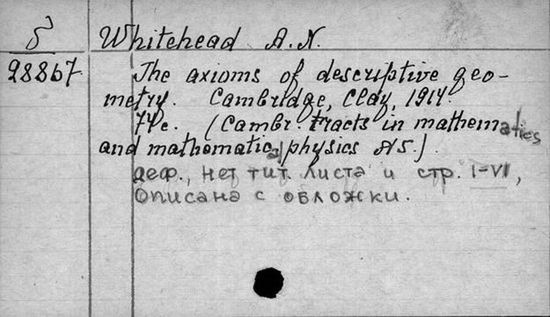 δ Whitehead A.N.
28867 The axioms of descriptive geo-
metry. Cambridge, Clay, 1914.
74c. (Cambr. tracts in mathematics
and mathematical physics N5.).
деф., нет тит. листа и стр. I-VI,
Описана с обложки.